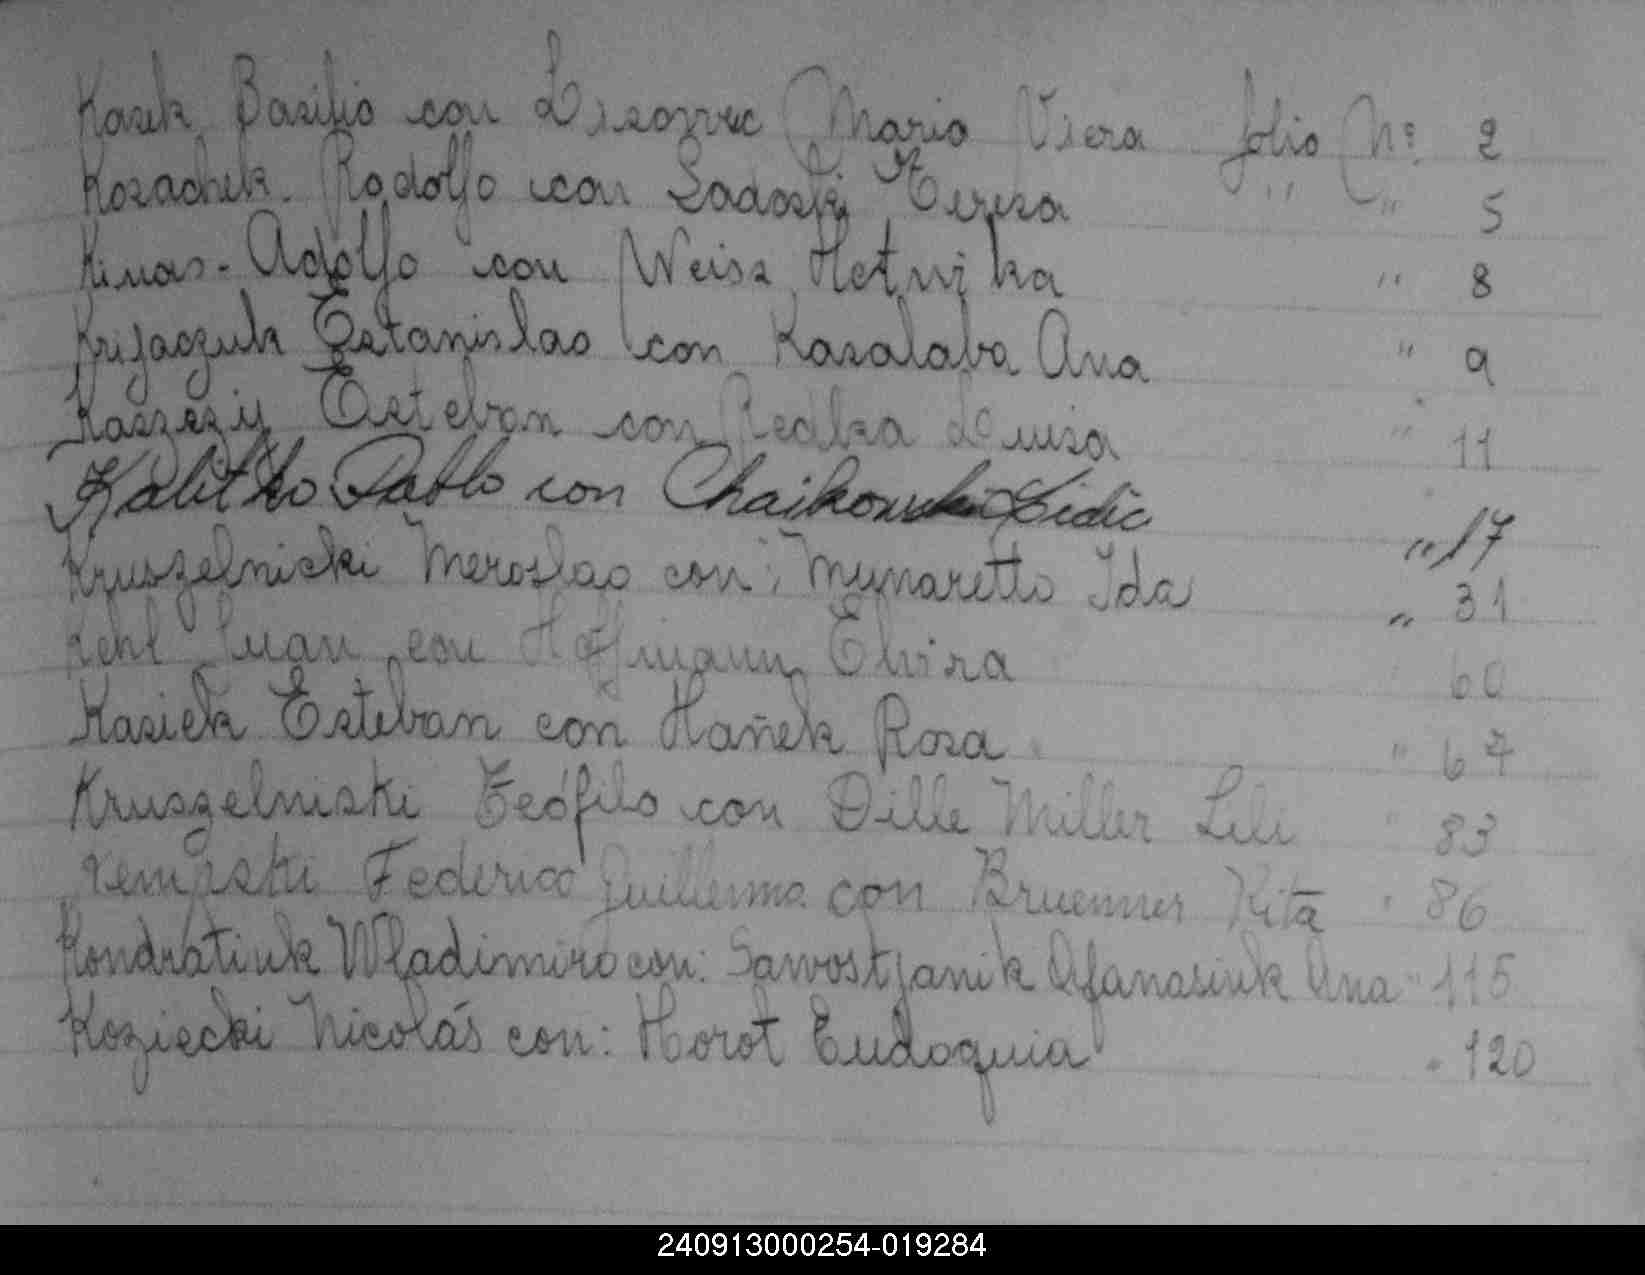 Kasek Basilio con Lisozvec Maria Viera folio Nº 2
Kozachek. Rodolfo con Sadoski Tereza " " 5
Kimas - Adolfo con Weisz Hetwika " 8
Krijaczuk Estanislao con Kasalaba Ana " 9
Kaszezij Esteban con Redlza Luisa " 11
Kalitko Pablo con Chaikowski Lidie " 17
Kruszelnicki Meroslao con: Mynaretto Ida " 31
Kehl Juan con Hoffmann Elvira 60
Kasiek Esteban con Hañek Rosa " 67
Kruszelniski Teófilo con Dille Miller Lili " 83
Kempski Federico Guillermo con Bruenner Kita " 86
Kondratiuk Wladimiro con: Sawostjanik Afanasiuk Ana " 115
Koziecki Nicolás con: Horot Eudoquia " 120
240913000254-019284